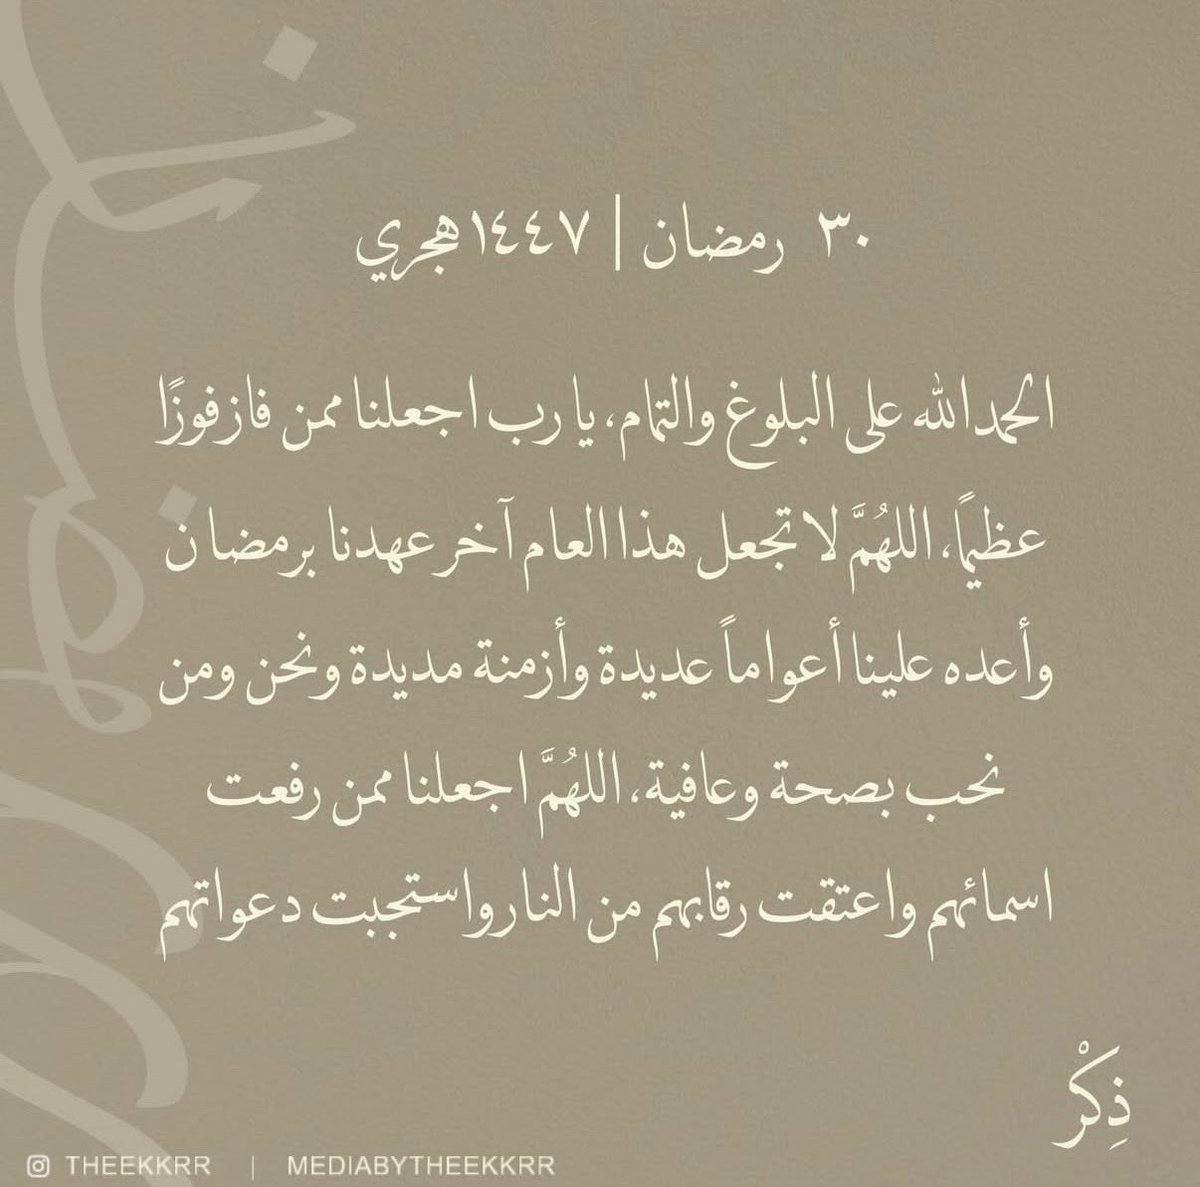 ٣٠ رمضان | ١٤٤٧ هجري
الحمدالله على البلوغ والتمام، يا رب اجعلنا ممن فاز فوزًا
عظيمًا، اللهُمَّ لا تجعل هذا العام آخر عهدنا برمضان
وأعده علينا أعواماً عديدة وأزمنة مديدة ونحن ومن
نحب بصحة وعافية، اللهُمَّ اجعلنا ممن رفعت
اسمائهم واعتقت رقابهم من النار واستجبت دعواتهم
ذِكْر
THEEKKRR | MEDIABYTHEEKKRR